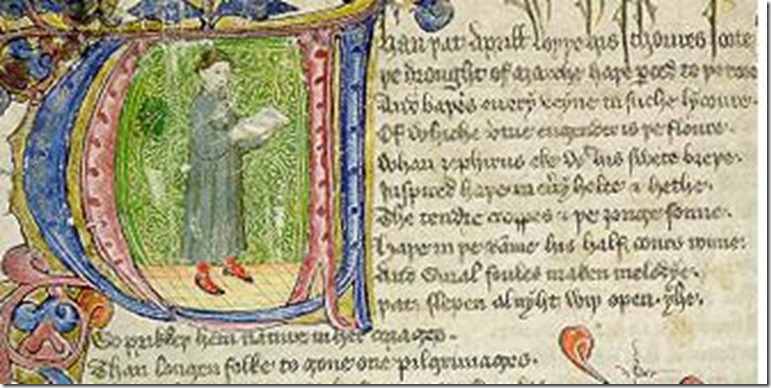 Whan þat Aprill wyþ his schoures soote
þe drought of marche haþe perced to þe roote
And baþed euery veyne in suche lycoure.
Of whiche vertue engendred is þe floure.
Whan zephirus eke wᵗ his swete breþe.
Inspired haþe in eu̾y holte & heþe.
The tendre croppes & þe ȝonge sonne.
haþe in þe rame his half cours ronne.
And smal foules maken melodye.
þat slepen al nyht wiþ open yhe.
So prikkeþ hem nature in her corages.
Than longen folke to gone one pilgrimages.